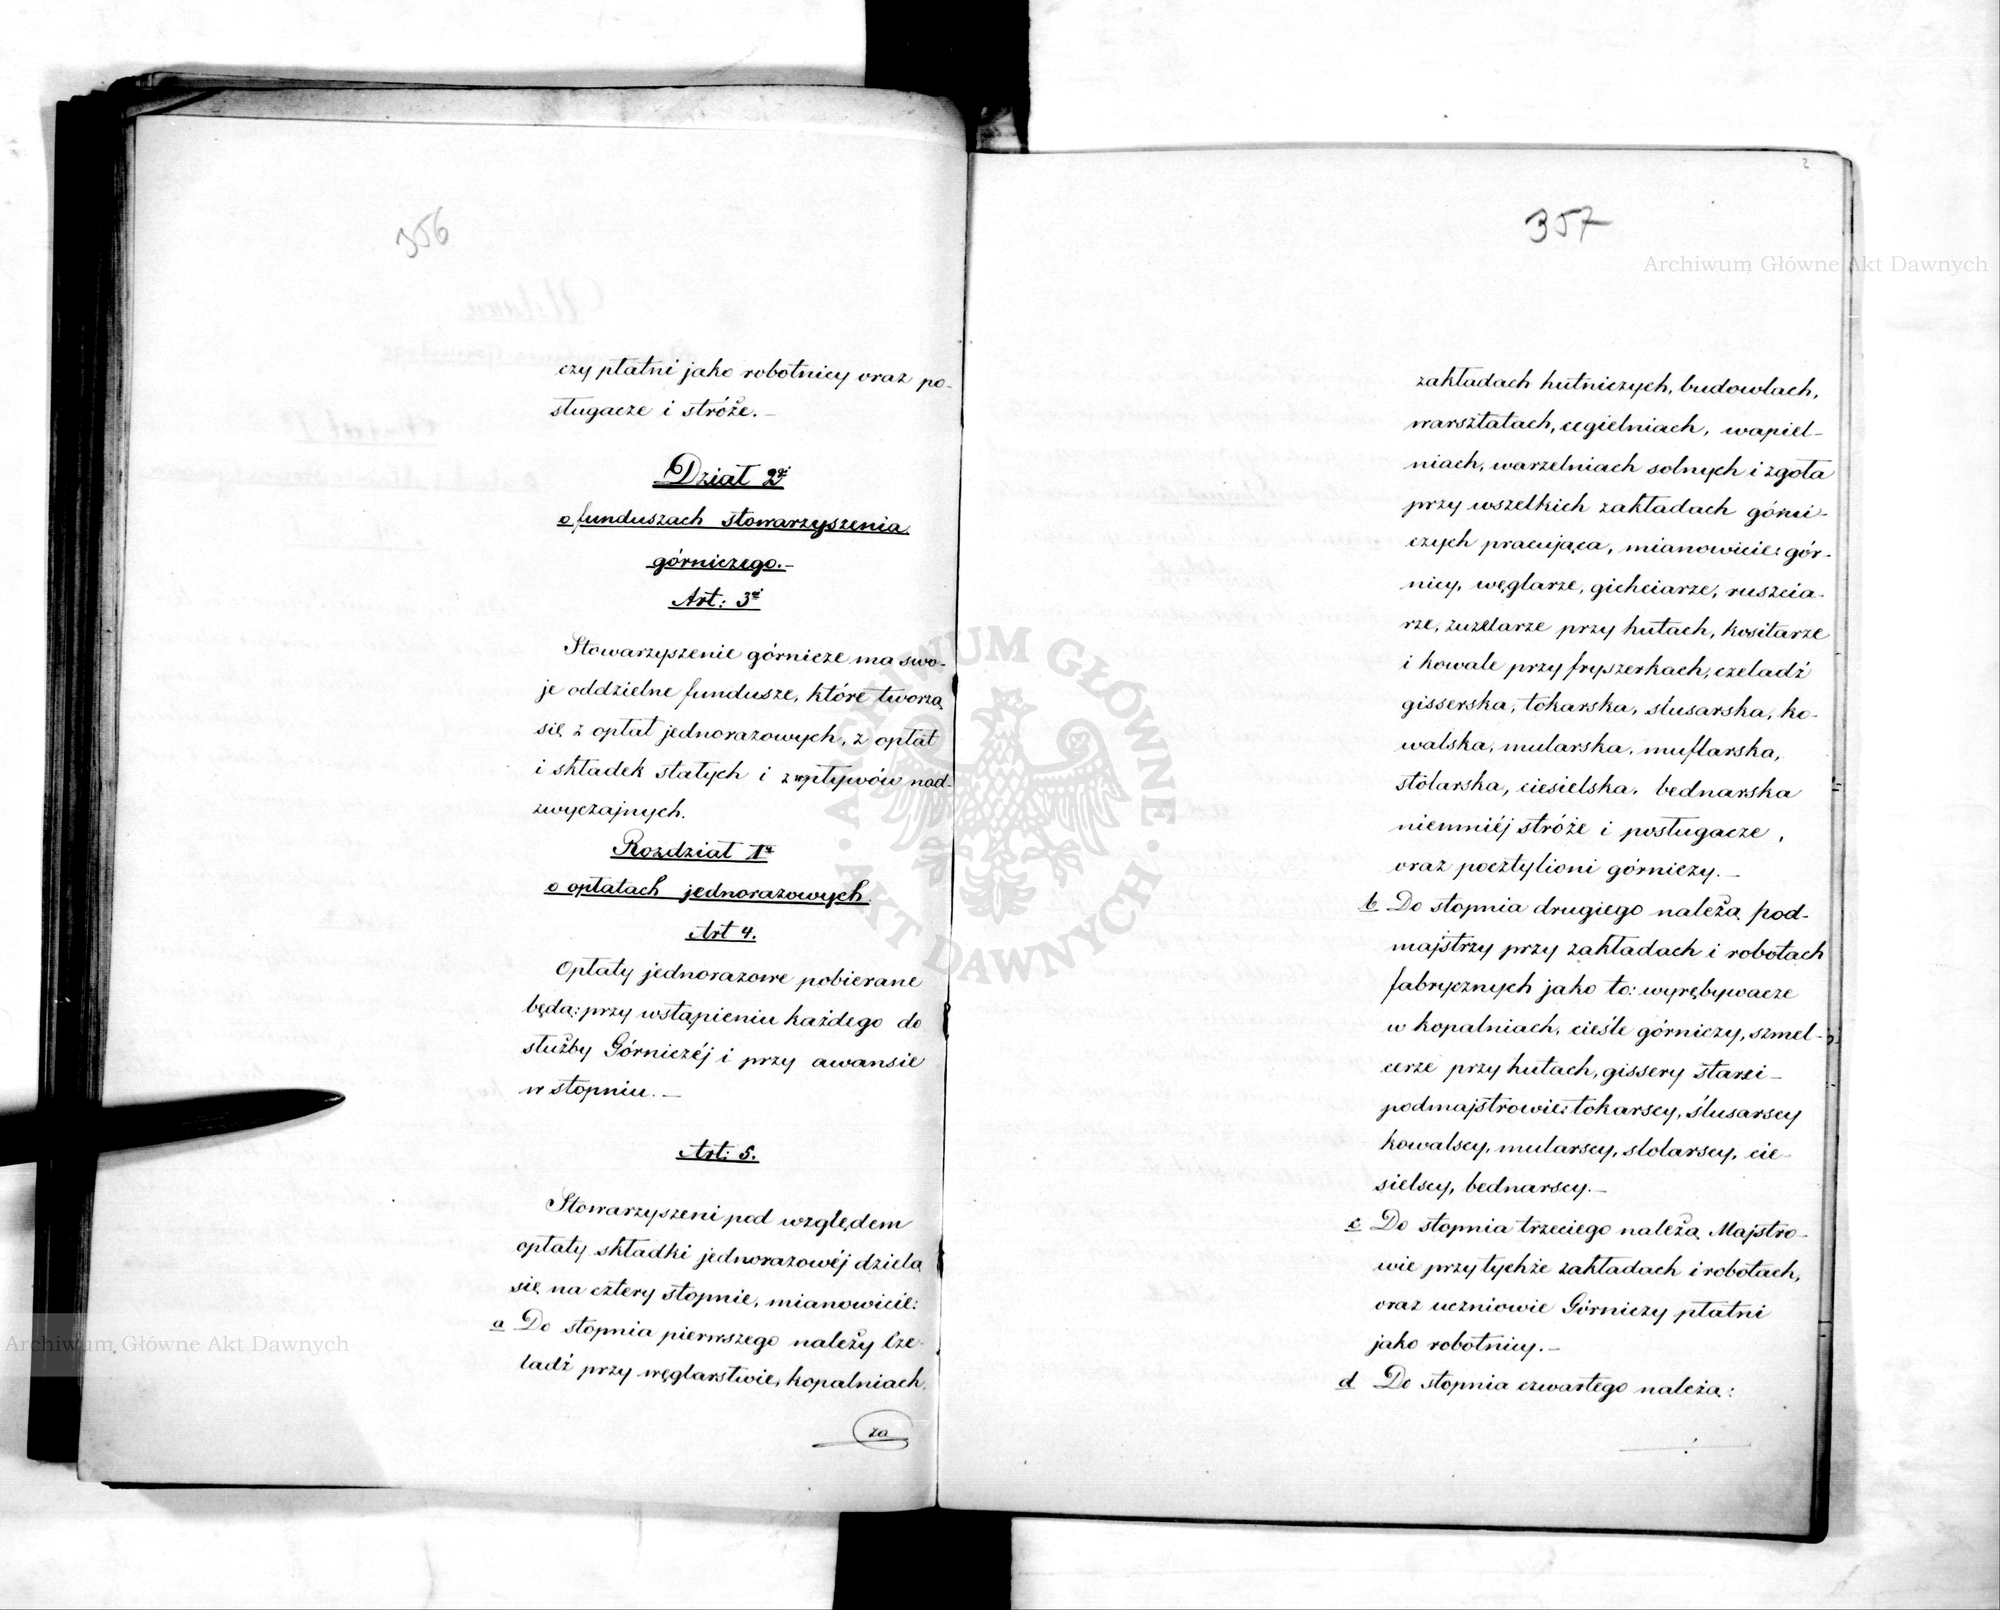 356
czy płatni jako robotnicy oraz po-
sługacze i stróże.-
Dział 2gi
o funduszach stowarzyszenia
górniczego.-
Art: 3ci
Stowarzyszenie górnicze ma swo-
je oddzielne fundusze, które tworzą
się z opłat jednorazowych, z opłat
i składek stałych i z wpływów nad-
zwyczajnych.
Rozdział 1y
o opłatach jednorazowych.
Art 4.
Opłaty jednorazowe pobierane
będą: przy wstąpieniu każdego do
służby Górniczéj i przy awansie
w stopniu.-
Art: 5.
Stowarzyszeni pod względem
opłaty składki jednorazowéj dzielą
się na cztery stopnie, mianowicie:
a Do stopnia pierwszego należy Cze-
ladź przy węglarstwie, kopalniach,
za
2
357
zakładach hutniczych, budowlach,
warsztatach, cegielniach, wapiel-
niach, warzelniach solnych i zgoła
przy wszelkich zakładach górni-
czych pracująca, mianowicie: gór-
nicy, węglarze, gichciarze, ruszcia-
rze, żużlarze przy hutach, kositarze
i kowale przy fryszerkach, czeladź
gisserska, tokarska, ślusarska, ko-
walska, mularska, muflarska,
stolarska, ciesielska, bednarska
niemniéj stróże i posługacze,
oraz pocztylioni górniczy.-
b Do stopnia drugiego należą pod-
majstrzy przy zakładach i robotach
fabrycznych jako to: wyrębywacze
w kopalniach, cieśle górniczy, szmel-
cerze przy hutach, gissery starsi-
podmajstrowie: tokarscy, ślusarscy
kowalscy, mularscy, stolarscy, cie-
sielscy, bednarscy.-
c Do stopnia trzeciego należą Majstro-
wie przy tychże zakładach i robotach,
oraz uczniowie Górniczy płatni
jako robotnicy.-
d Do stopnia czwartego należą:
Archiwum Główne Akt Dawnych
Archiwum Główne Akt Dawnych
ARCHIWUM GŁÓWNE AKT DAWNYCH